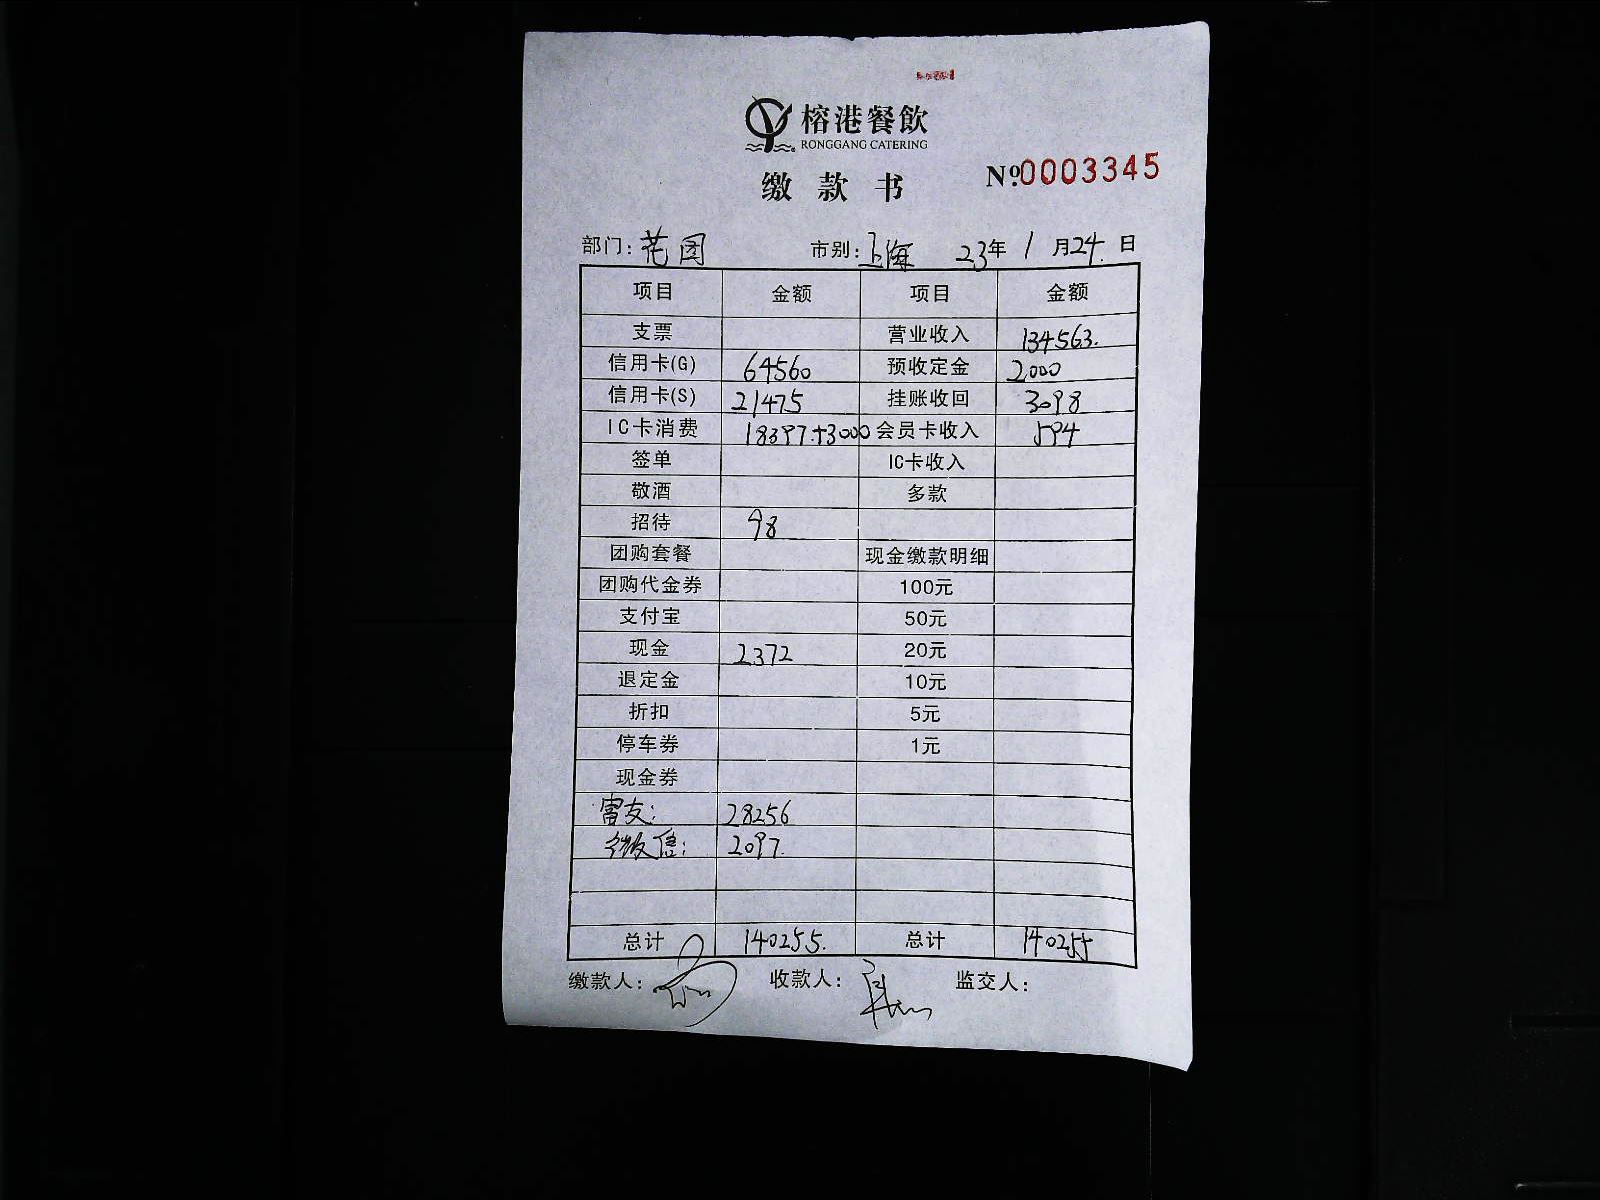 榕港餐飲
RONGGANG CATERING
缴款书
№0003345
部门：花园 市别：上海 23年1月24日
项目 金额 项目 金额
支票 营业收入 134563.
信用卡(G) 64560 预收定金 2000
信用卡(S) 21475 挂账收回 3098
IC卡消费 18397.+3000 会员卡收入 594
签单 IC卡收入
敬酒 多款
招待 98
团购套餐 现金缴款明细
团购代金券 100元
支付宝 50元
现金 2372 20元
退定金 10元
折扣 5元
停车券 1元
现金券
28256
微信： 2097.
总计 140255. 总计 140255
缴款人： 收款人： 监交人：